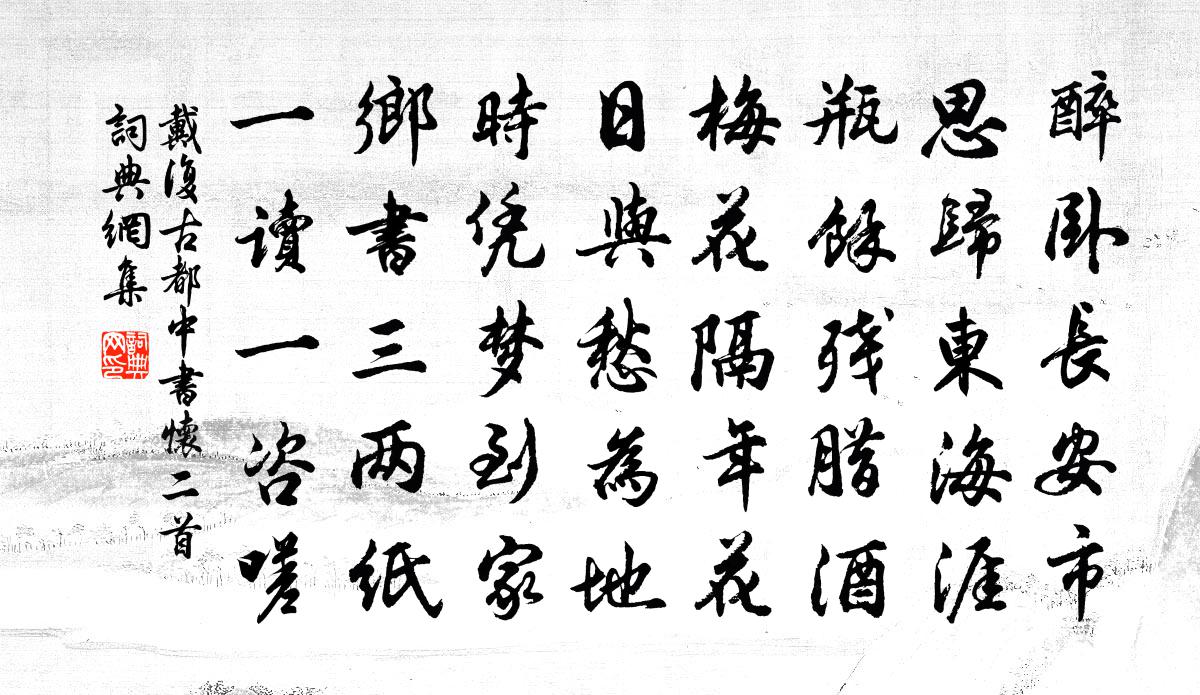 醉卧長安市
思歸東海涯
瓶餘残腊酒
梅花隔年花
日與愁為地
時凭梦到家
鄉書三两紙
一讀一咨嗟
戴復古都中書懷二首
詞典網集
詞典网印